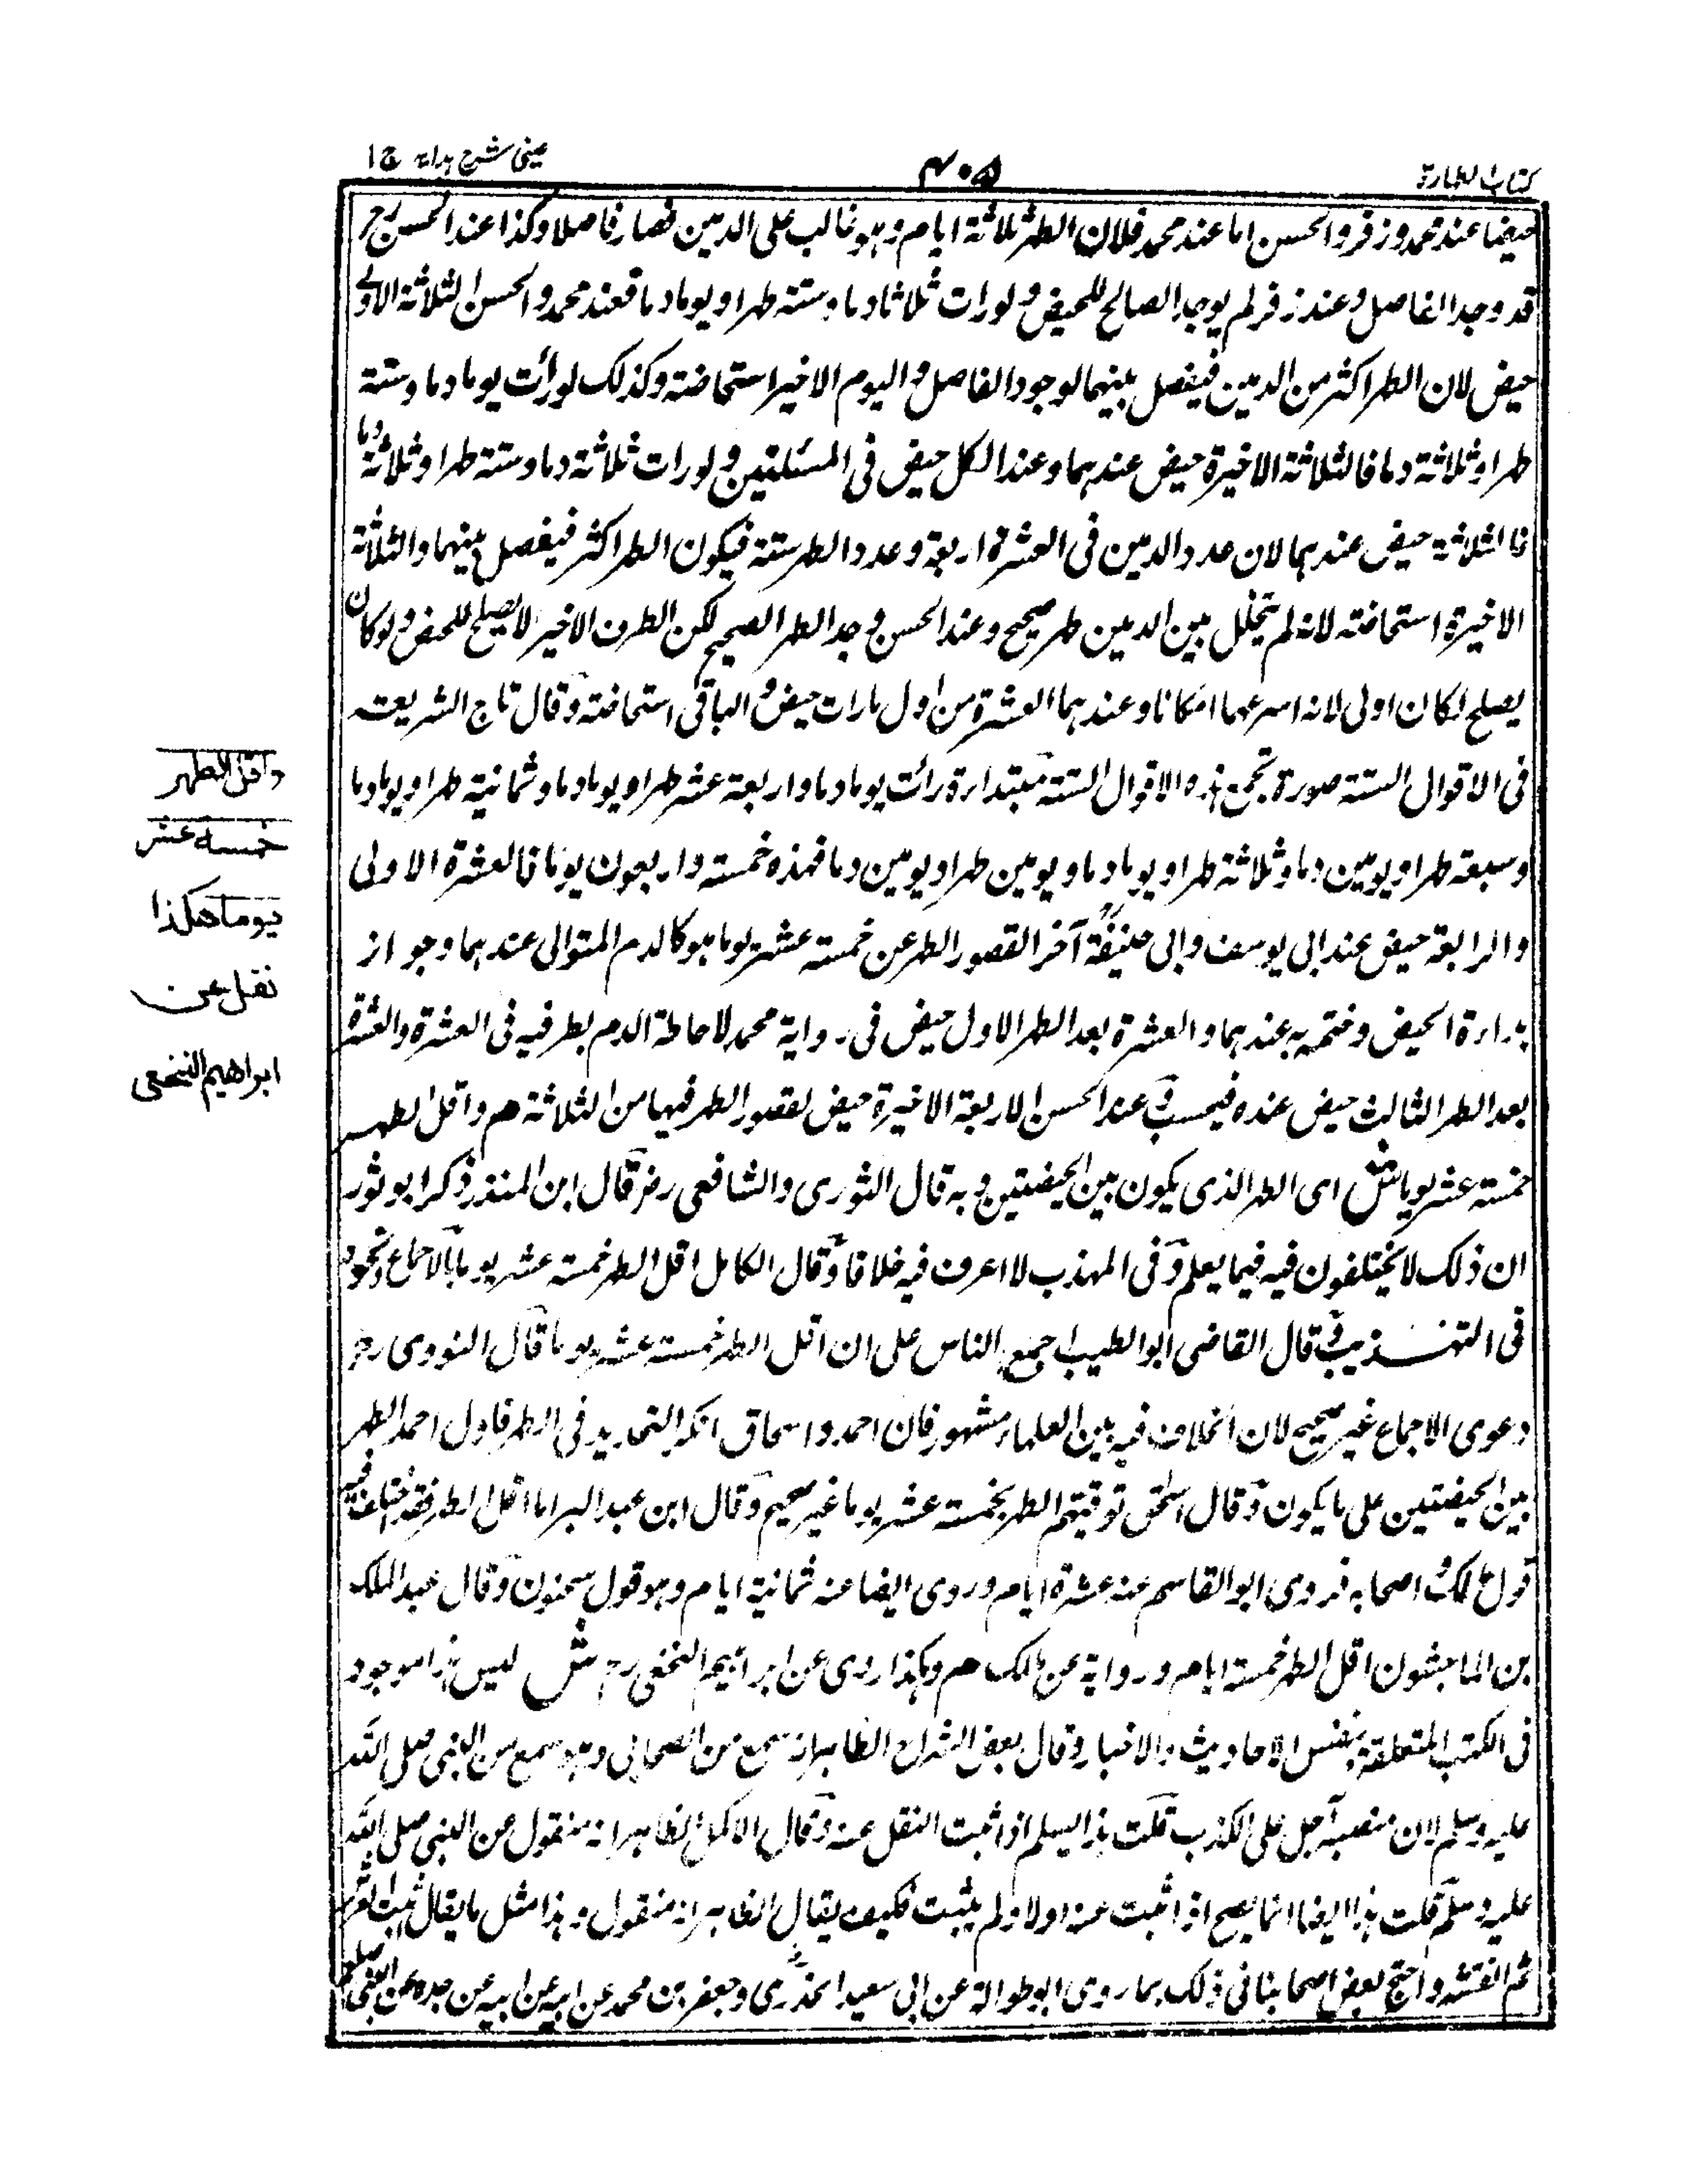 كتاب الطهارة
۴۰۵
عينى شرح هداية ج ١
حيضا عند محمد وزفر والحسن اما عند محمد فلان الطهر ثلاثة ايام وهو غالب على الدمين فصار فاصلا وكذا عند الحسن رح
قد وجد الفاصل وعند زفر لم يوجد الصالح للحيض ولو رات ثلاثا دما وستة طهرا ويوما دما فعند محمد والحسن الثلاثة الاولى
حيض لان الطهر اكثر من الدمين فيفصل بينهما لوجود الفاصل واليوم الاخير استحاضة وكذلك لو رأت يوما دما وستة
طهرا وثلاثة دما فالثلاثة الاخيرة حيض عندهما وعند الكل حيض فى المسئلتين ولو رات ثلاثة دما وستة طهرا وثلاثة دما
فالثلاثة حيض عندهما لان عدد الدمين فى العشرة اربعة وعدد الطهر ستة فيكون الطهر اكثر فيفصل بينهما والثلاثة
الاخيرة استحاضة لانه لم يتخلل بين الدمين طهر صحيح وعند الحسن وجد الطهر الصحيح لكن الطرف الاخير لا يصلح للحيض ولو كان
يصلح لكان اولى لانه اسرعهما امكانا وعندهما العشرة من اول ما رات حيض والباقى استحاضة وقال تاج الشريعة
فى الاقوال الستة صورة تجمع هذه الاقوال الستة مبتدأة رأت يوما دما واربعة عشر طهرا ويوما دما وثمانية طهرا ويوما دما
وسبعة طهرا ويومين دما وثلاثة طهرا ويوما دما ويومين طهرا ويومين دما فهذه خمسة واربعون يوما فالعشرة الاولى
والرابعة حيض عند ابى يوسف وابى حنيفة آخر القصور الطهر عن خمسة عشر يوما هو كالدم المتوالى عندهما وجواز
بداءة الحيض وختمه به عندهما والعشرة بعد الطهر الاول حيض فى رواية محمد لاحاطة الدم بطرفيه فى العشرة والعشرة
بعد الطهر الثالث حيض عنده فيحسب فى عند الحسن الاربعة الاخيرة حيض لقصور الطهر فيها من الثلاثة م واقل الطهر
خمسة عشر يوما ش اى الطهر الذى يكون بين الحيضتين وبه قال الثورى والشافعى رض قال ابن المنذر ذكر ابو ثور
ان ذلك لا يختلفون فيه فيما يعلم وفى المهذب لا اعرف فيه خلافا وقال الكامل اقل الطهر خمسة عشر يوما بالاجماع ونحوه
فى التهذيب قال القاضى ابو الطيب اجمع الناس على ان اقل الطهر خمسة عشر يوما قال النووى رح
دعوى الاجماع غير صحيح لان الخلاف فيه بين العلماء مشهور فان احمد واسحاق انكرا التحديد فى الطهر فاول احمد الطهر
بين الحيضتين على ما يكون وقال اسحق توقيتهم الطهر بخمسة عشر يوما غير صحيح وقال ابن عبد البر اما اقل الطهر فقد اختلف فيه
قول مالك واصحابه فروى ابو القاسم عنه عشرة ايام وروى ايضا عنه ثمانية ايام وهو قول سحنون وقال عبد الملك
بن الماجشون اقل الطهر خمسة ايام ورواية عن مالك م وهكذا روى عن ابراهيم النخعى رح ش ليس هذا موجود
فى الكتب المتعلقة بنفس الاحاديث والاخبار وقال بعض الشراح الظاهر انه سمع من الصحابى وهو سمع من النبى صلى الله
عليه وسلم لان منصبه اجل على الكذب قلت هذا يسلم اذا ثبت النقل عنه وقال الاكمل الظاهر انه منقول عن النبى صلى الله
عليه وسلم قلت هذا ايضا انما يصح اذا ثبت عنه اولا ولم يثبت فكيف يقال الظاهر انه منقول وهذا مثل ما يقال ثبت العرش
ثم انقشه واحتج بعض اصحابنا فى ذلك بما روى ابو طوالة عن ابى سعيد الخدرى وجعفر بن محمد عن ابيه عن ابيه عن جده عن النبى صلعم
واقل الطهر
خمسة عشر
يوما هكذا
نقل عن
ابراهيم النخعى